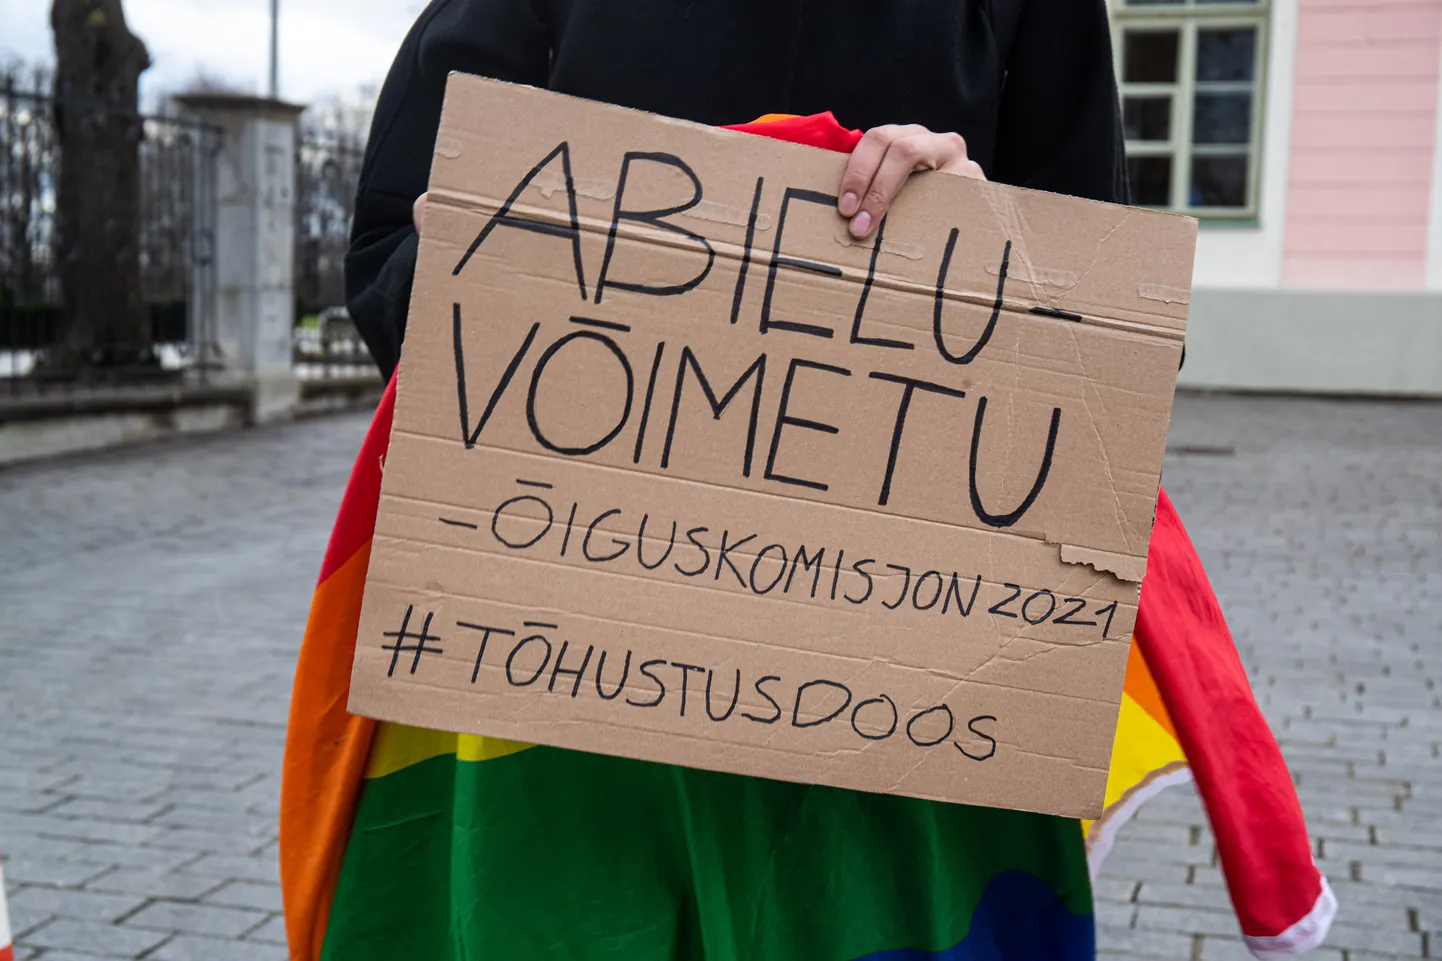 ABIELU-
VÕIMETU
-ÕIGUSKOMISJON 2021
#TÕHUSTUSDOOS